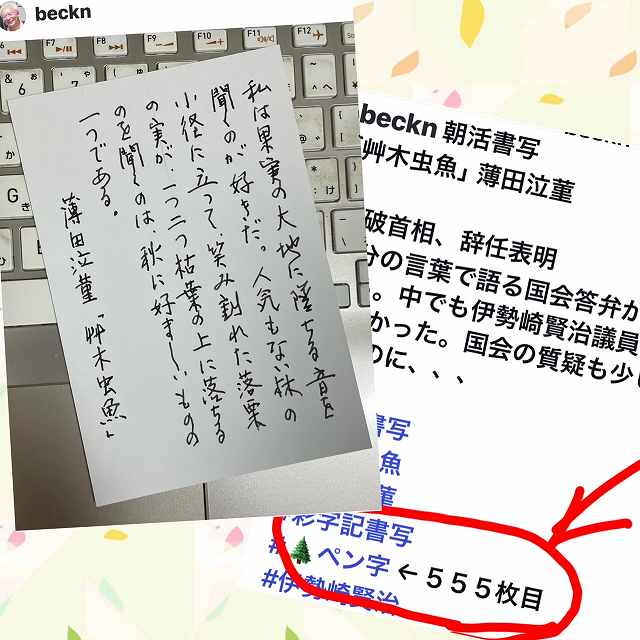 beckn
F7 F8 F9 F10 F11 F12
私は果実の大地に墜ちる音を
聞くのが好きだ。人気もない林の
小径に立って、笑み割れた落栗
の実が、一つ二つ枯葉の上に落ちる
のを聞くのは、秋に好ましいものの
一つである。
薄田泣菫「艸木虫魚」
beckn 朝活書写
艸木虫魚」薄田泣菫
破首相、辞任表明
分の言葉で語る国会答弁が
。中でも伊勢崎賢治議員
かった。国会の質疑も少し
のに、、、
書写
魚
菫
彩字記書写
#🌲ペン字 ←５５５枚目
#伊勢崎賢治